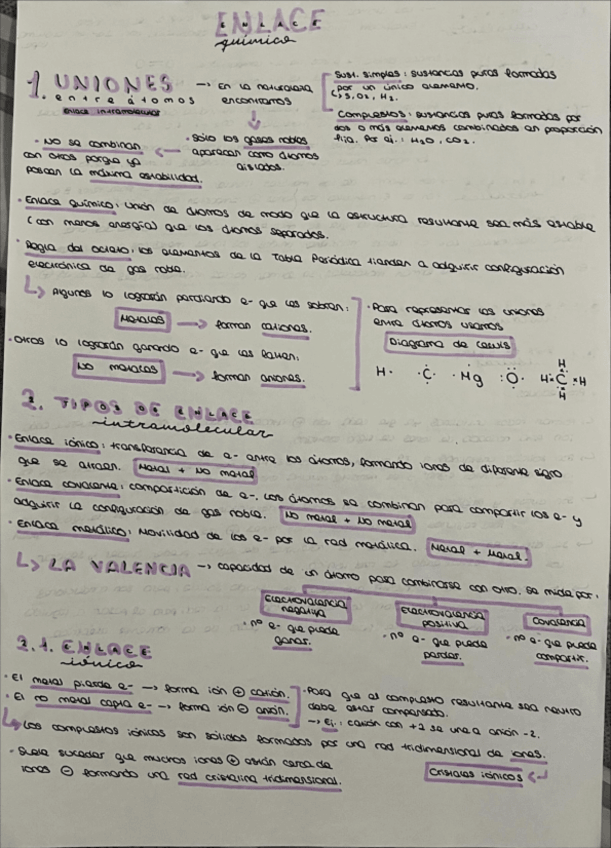 ENLACE
químico
1. UNIONES
entre átomos
enlace intramolecular
→ En la naturaleza
encontramos
Sust. simples: sustancias puras formadas
por un único elemento.
↳ S, O2, H2.
Compuestos: sustancias puras formadas por
dos o más elementos combinados en proporción
fija. Por ej.: H2O, CO2.
· Sólo los gases nobles
aparecen como átomos
aislados.
· No se combinan
con otros porque ya
poseen la máxima estabilidad.
· Enlace químico: unión de átomos de modo que la estructura resultante sea más estable
(con menos energía) que los átomos separados.
· Regla del octeto: los elementos de la Tabla Periódica tienden a adquirir configuración
electrónica de gas noble.
↳ Algunos lo lograrán perdiendo e- que les sobran:
Metales → forman cationes.
· Otros lo lograrán ganando e- que les faltan:
No metales → forman aniones.
· Para representar las uniones
entre átomos usamos
Diagrama de Lewis
H· ·C· ·Mg :O· H C H
H
H
2. TIPOS DE ENLACE
intramolecular
· Enlace iónico: transferencia de e- entre los átomos, formando iones de diferente signo
que se atraen. Metal + No metal
· Enlace covalente: compartición de e-. Los átomos se combinan para compartir los e- y
adquirir la configuración de gas noble. No metal + No metal
· Enlace metálico: Movilidad de los e- por la red metálica. Metal + Metal.
↳ LA VALENCIA → capacidad de un átomo para combinarse con otro. Se mide por:
Electrovalencia
negativa
· nº e- que puede
ganar.
Electrovalencia
positiva
· nº e- que puede
perder.
Covalencia
· nº e- que puede
compartir.
2.1. ENLACE
iónico
· El metal pierde e- → forma ión ⊕ catión.
· El no metal capta e- → forma ión ⊖ anión.
· Para que el compuesto resultante sea neutro
debe estar compensado.
→ Ej.: catión con +2 se une a anión -2.
↳ Los compuestos iónicos son sólidos formados por una red tridimensional de iones.
· Suele suceder que muchos iones ⊕ están cerca de
iones ⊖ formando una red cristalina tridimensional.
Cristales iónicos ↵